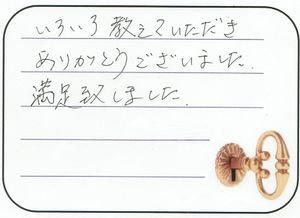 いろいろ教えていただき
ありがとうございました.
満足致しました.